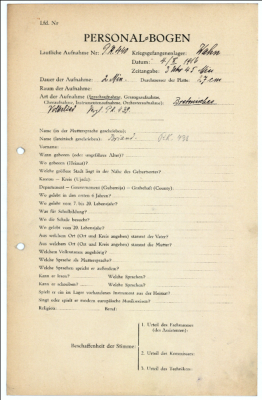 Lfd. Nr
PERSONAL-BOGEN
Lautliche Aufnahme Nr.: Kriegsgefangenenlager: Wahn
Datum: 1916
Zeitangabe: 3 Uhr 45 Min
Dauer der Aufnahme: 2 Min. Durchmesser der Platte: 27 cm
Raum der Aufnahme:
Art der Aufnahme (Sprechaufnahme, Gesangsaufnahme,
Choraufnahme, Instrumentenaufnahme, Orchesteraufnahme):
Name (in der Muttersprache geschrieben):
Name (lateinisch geschrieben):
Vorname:
Wann geboren (oder ungefähres Alter)?
Wo geboren (Heimat)?
Welche größere Stadt liegt in der Nähe des Geburtsortes?
Kanton — Kreis (Ujedz):
Departement — Gouvernement (Gubernija) — Grafschaft (County):
Wo gelebt in den ersten 6 Jahren?
Wo gelebt vom 7. bis 20. Lebensjahr?
Was für Schulbildung?
Wo die Schule besucht?
Wo gelebt vom 20. Lebensjahr?
Aus welchem Ort (Ort und Kreis angeben) stammt der Vater?
Aus welchem Ort (Ort und Kreis angeben) stammt die Mutter?
Welchem Volksstamm angehörig?
Welche Sprache als Muttersprache?
Welche Sprachen spricht er außerdem?
Kann er lesen? Welche Sprachen?
Kann er schreiben? Welche Sprachen?
Spielt er ein im Lager vorhandenes Instrument aus der Heimat?
Singt oder spielt er modern europäische Musikweisen?
Religion: Beruf:
Beschaffenheit der Stimme:
1. Urteil des Fachmannes
(des Assistenten):
2. Urteil des Kommissars:
3. Urteil des Technikers: